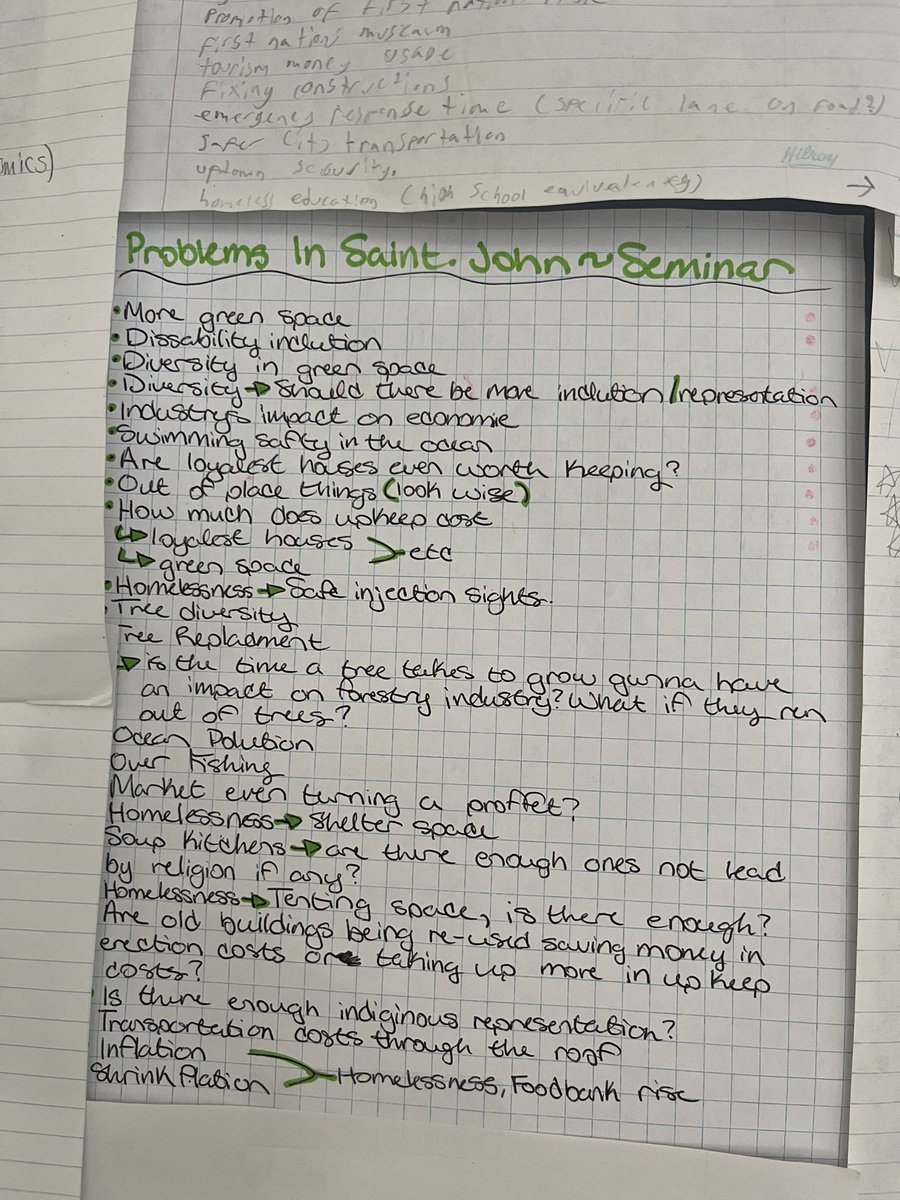 Promotion of First nation
first nations museam
tourism money usage
Fixing constructions
emergency response time (specific lane on road?)
safer City transportation
uptown security.
Hilroy
homeless education (high school equivalentsy)
→
omics)
Problems In Saint. John ~ Seminar
•More green space
•Dissability inclution
•Diversity in green space
•Diversity→Should there be more inclution/represotation
•Industrys impact on economie
•Swimming safty in the ocean
•Are loyalest houses even worth keeping?
•Out of place things (look wise)
•How much does upkeep cost
↳loyalest houses >etc
↳green space
•Homelessness→Safe injection sights.
•Tree diversity
Tree Replacment
→is the time a tree takes to grow gunna have
an impact on forestry industry? What if they run
out of trees?
Ocean Polution
Over Fishing
Market even turning a proffet?
Homelessness→Shelter space
Soup Kitchens→are there enough ones not lead
by religion if any?
Homelessness→Tenting space, is there enough?
Are old buildings being re-used saving money in
erection costs or taking up more in upkeep
costs?
Is there enough indiginous representation?
Transportation costs through the roof
Inflation
Shrinkflation >Homelessness, Foodbank rise